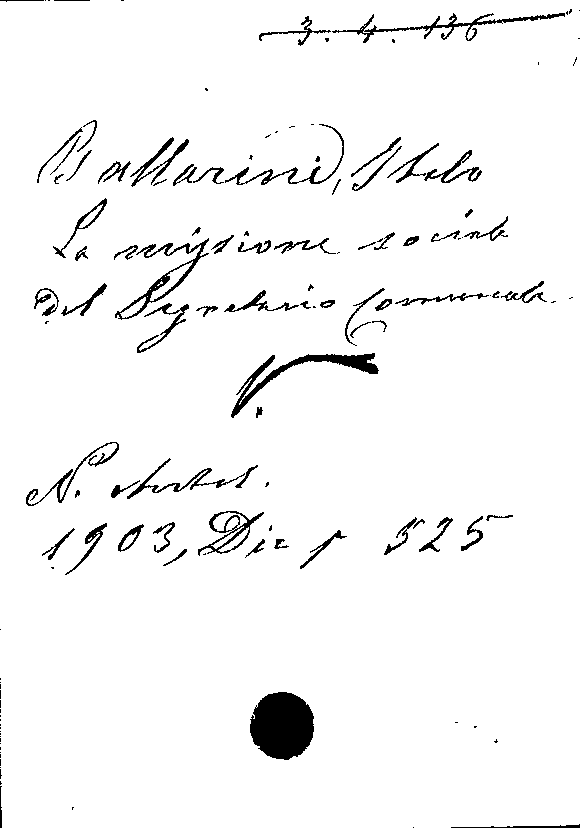 3. 4. 136
Ballarini, Italo
La missione sociale
del Segretario Comunale
V.
N. Antol.
1903, Dic p 525